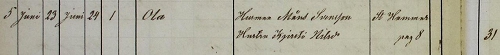 5 Juni 23 Juni 24 1 Ola Husman Måns Svensson St Hammar
Hustru Kjersti Nilsd. pag 8 31